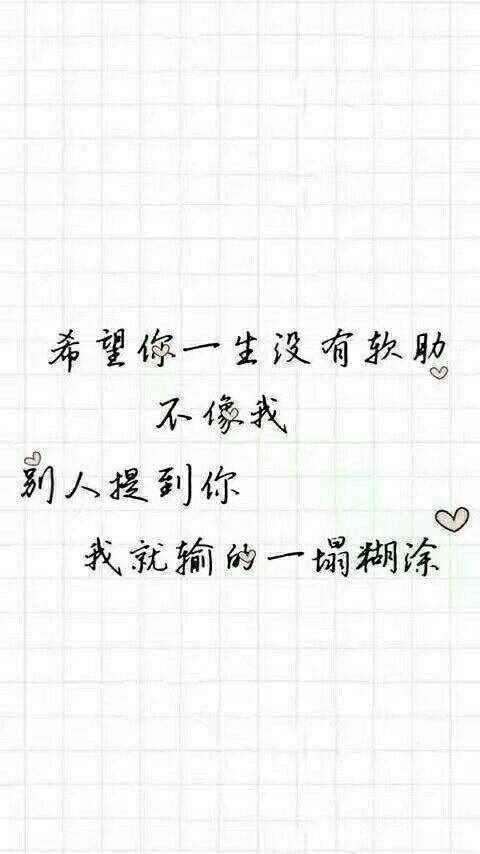 希望你一生没有软助
不像我
别人提到你
我就输的一塌糊涂